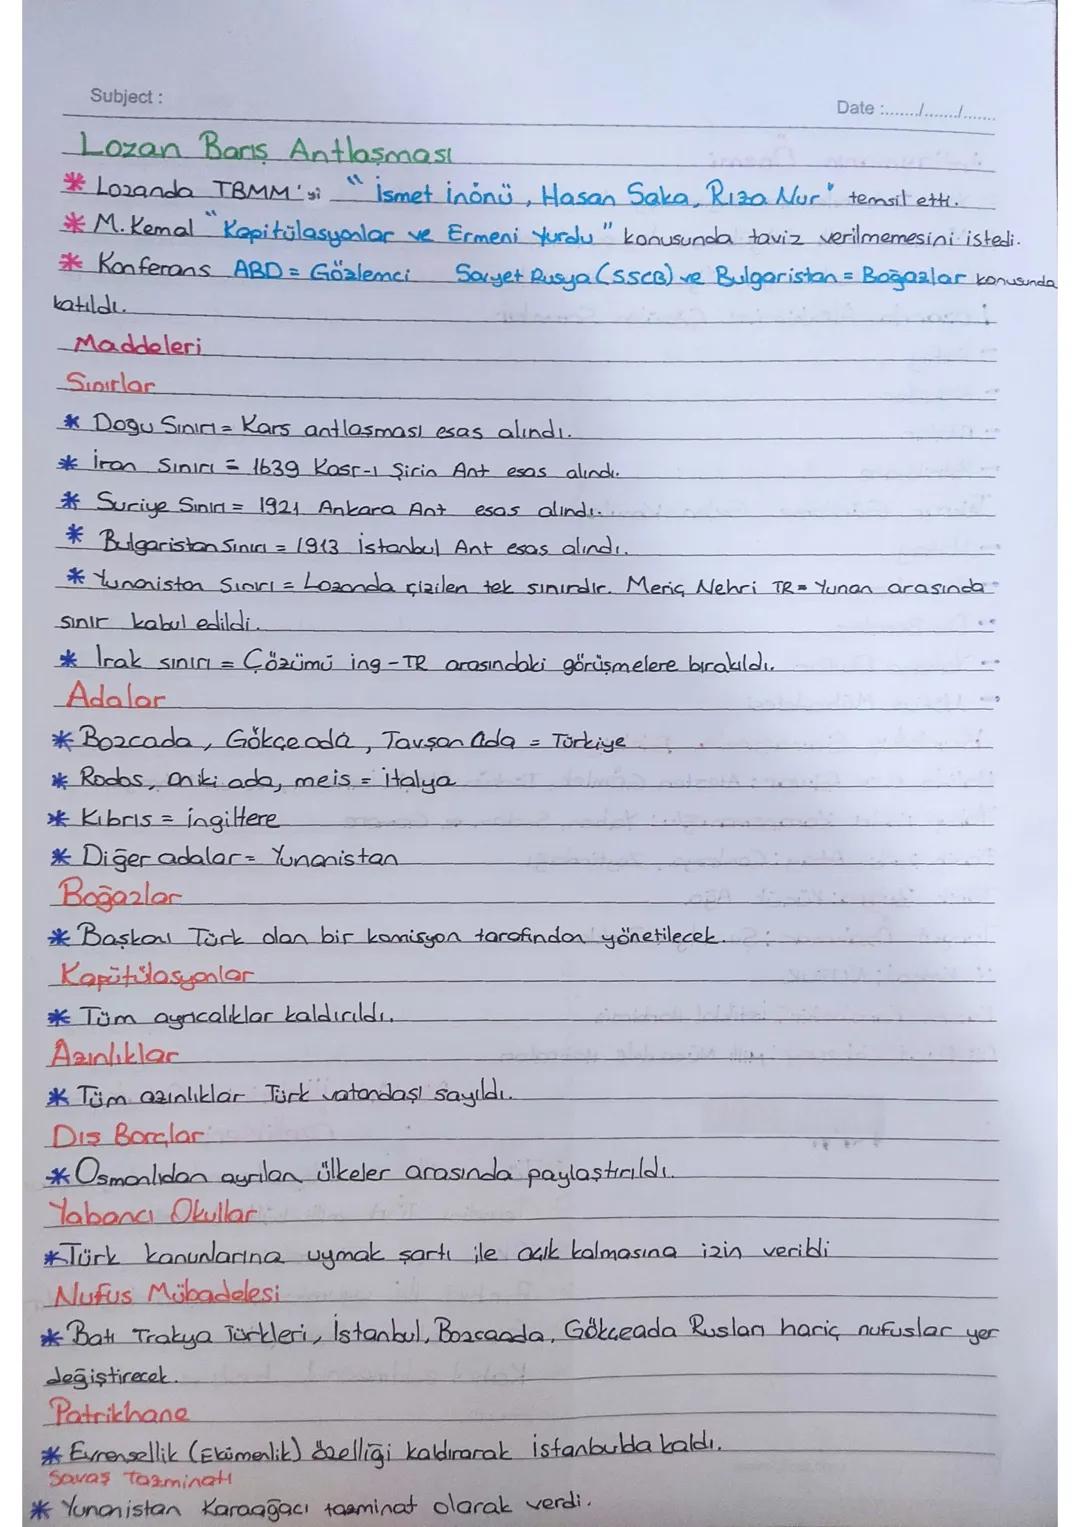 Subject :
Date :......./......./.......
Lozan Barış Antlaşması
* Lozanda TBMM'yi "İsmet İnönü, Hasan Saka, Rıza Nur" temsil etti.
* M. Kemal "Kapitülasyonlar ve Ermeni Yurdu" konusunda taviz verilmemesini istedi.
* Konferans ABD = Gözlemci Sovyet Rusya (SSCB) ve Bulgaristan = Boğazlar konusunda
katıldı.
Maddeleri
Sınırlar
* Doğu Sınırı = Kars antlaşması esas alındı.
* İran Sınırı = 1639 Kasr-ı Şirin Ant esas alındı.
* Suriye Sınırı = 1921 Ankara Ant esas alındı.
* Bulgaristan Sınırı = 1913 İstanbul Ant esas alındı.
* Yunanistan Sınırı = Lozanda çizilen tek sınırdır. Meriç Nehri TR = Yunan arasında
sınır kabul edildi.
* Irak sınırı = Çözümü ing - TR arasındaki görüşmelere bırakıldı.
Adalar
* Bozcada, Gökçeada, Tavşan Ada = Türkiye
* Rodos, oniki ada, meis = italya
* Kıbrıs = ingiltere
* Diğer adalar = Yunanistan
Boğazlar
* Başkanı Türk olan bir komisyon tarafından yönetilecek.
Kapütülasyonlar
* Tüm ayrıcalıklar kaldırıldı.
Azınlıklar
* Tüm azınlıklar Türk vatandaşı sayıldı.
Dış Borçlar
* Osmanlıdan ayrılan ülkeler arasında paylaştırıldı.
Yabancı Okullar
* Türk kanunlarına uymak şartı ile açık kalmasına izin verildi
Nufus Mübadelesi
* Batı Trakya Türkleri, İstanbul, Bozcaada, Gökçeada Rusları hariç nufuslar yer
değiştirecek.
Patrikhane
* Evrensellik (Ekümenlik) özelliği kaldırarak istanbulda kaldı.
Savaş tazminatı
* Yunanistan Karaağacı tazminat olarak verdi.